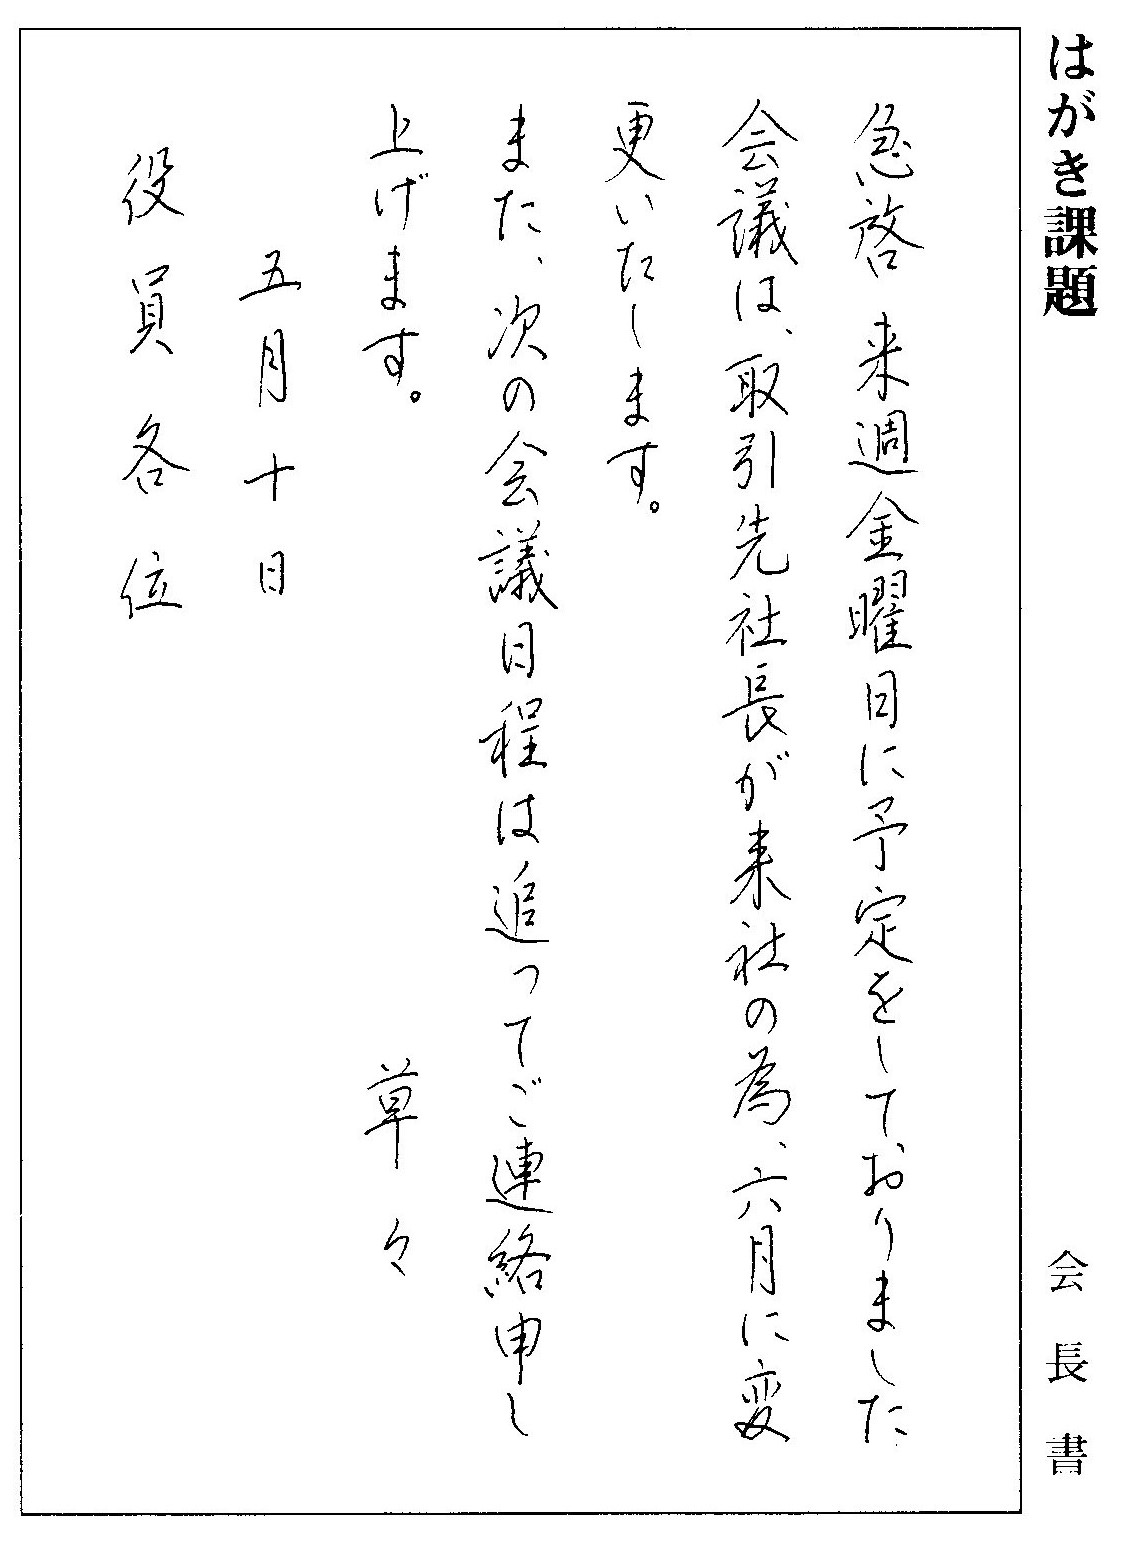 はがき課題
会長書
急啓 来週金曜日に予定をしておりました
会議は、取引先社長が来社の為、六月に変
更いたします。
また、次の会議日程は追ってご連絡申し
上げます。 草々
五月十日
役員各位